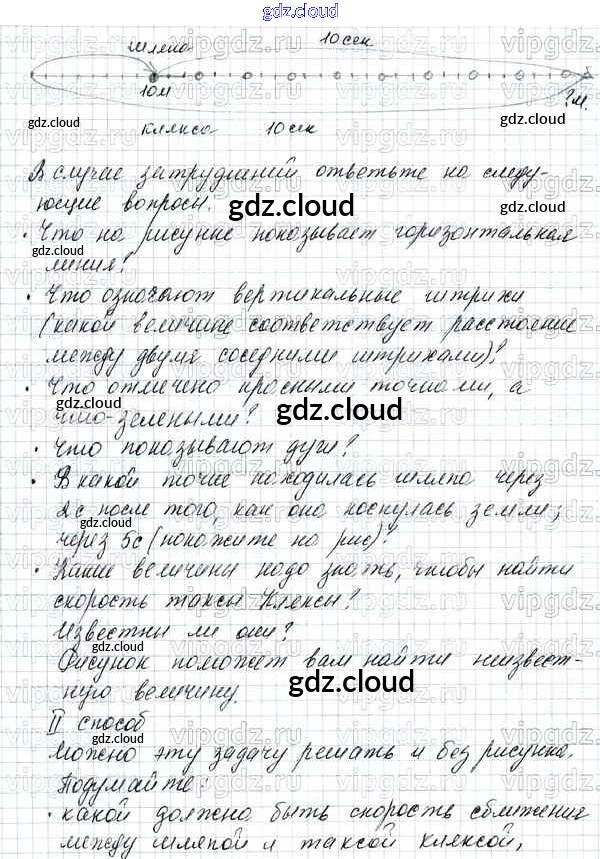 gdz.cloud
шляпа 10 сек
10м ?м.
клякса 10 сек
В случае затруднений ответьте на следу-
ющие вопросы.
• Что на рисунке показывает горизонтальная
линия?
• Что означают вертикальные штрихи
(какой величине соответствует расстояние
между двумя соседними штрихами)?
• Что отмечено красными точками, а
что-зелеными?
• Что показывают дуги?
• В какой точке находилась шляпа через
2с после того, как она коснулась земли;
через 5с (покажите на рис)?
• Какие величины надо знать, чтобы найти
скорость таксы Кляксы?
Известны ли они?
Рисунок поможет вам найти неизвест-
ную величину.
II способ
Можно эту задачу решать и без рисунка.
Подумайте:
• какой должно быть скорость сближения
между шляпой и таксой кляксой,